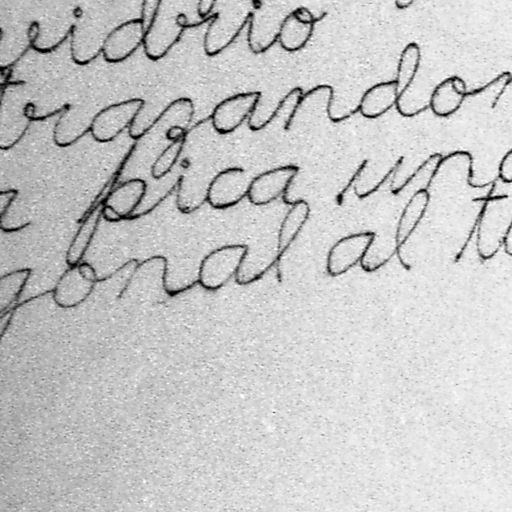 vidrio
trazando
a pica un
gonal al t